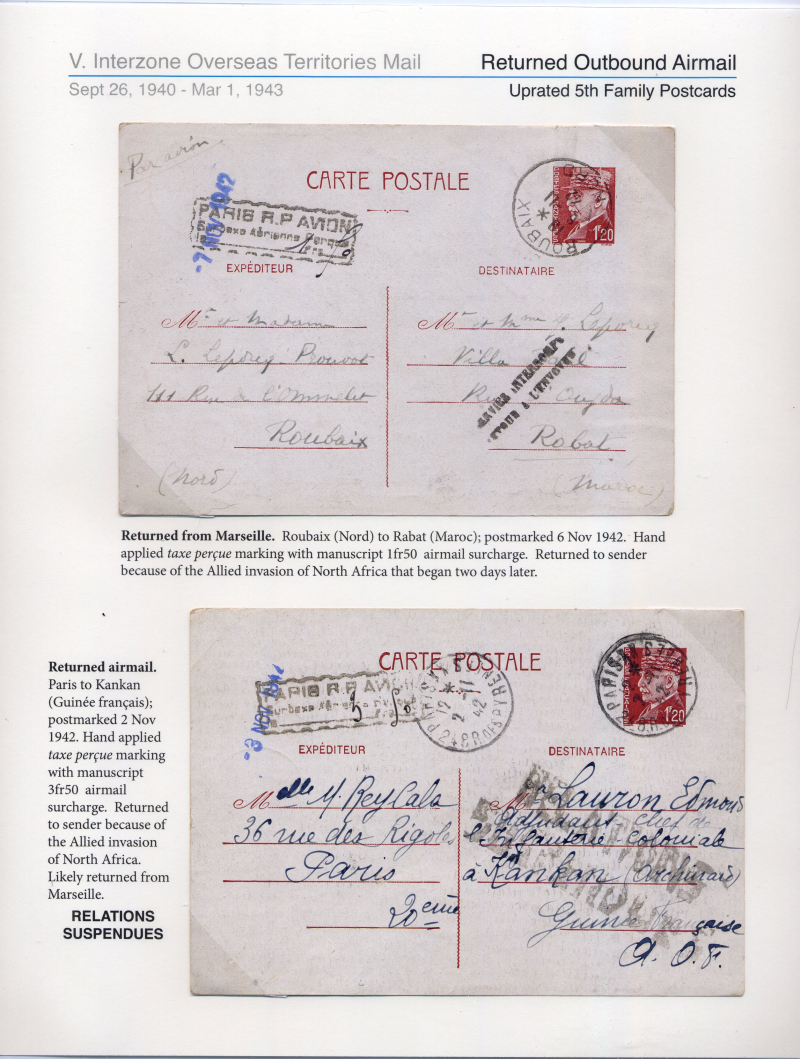 V. Interzone Overseas Territories Mail
Returned Outbound Airmail
Sept 26, 1940 - Mar 1, 1943
Uprated 5th Family Postcards
Par avion
CARTE POSTALE
ROUBAIX
1f20
-7 NOV 1942
PARIS R.P AVION
Surtaxe Aérienne Perçue
EXPÉDITEUR
DESTINATAIRE
Mr et Madame
L. Lepercq Prouvost
111 Rue de l'Ommelet
Roubaix
(Nord)
Mr et Mme Lepercq
Villa
Rue Oujda
Rabat
(Maroc)
RETOUR À L'ENVOYEUR
Returned from Marseille. Roubaix (Nord) to Rabat (Maroc); postmarked 6 Nov 1942. Hand
applied taxe perçue marking with manuscript 1fr50 airmail surcharge. Returned to sender
because of the Allied invasion of North Africa that began two days later.
CARTE POSTALE
1f20
-3 NOV 1942
PARIS R.P AVION
Surtaxe Aérienne
PARIS
R. DES PYRENEES
EXPÉDITEUR
DESTINATAIRE
Melle M. Rey Cala
36 rue des Rigoles
Paris
20eme
Mr Lauron Edmond
Adjudant chef de
l'Infanterie Coloniale
à Kankan (Archinard)
Guinée Française
A.O.F.
Returned airmail.
Paris to Kankan
(Guinée français);
postmarked 2 Nov
1942. Hand applied
taxe perçue marking
with manuscript
3fr50 airmail
surcharge. Returned
to sender because of
the Allied invasion
of North Africa.
Likely returned from
Marseille.
RELATIONS
SUSPENDUES